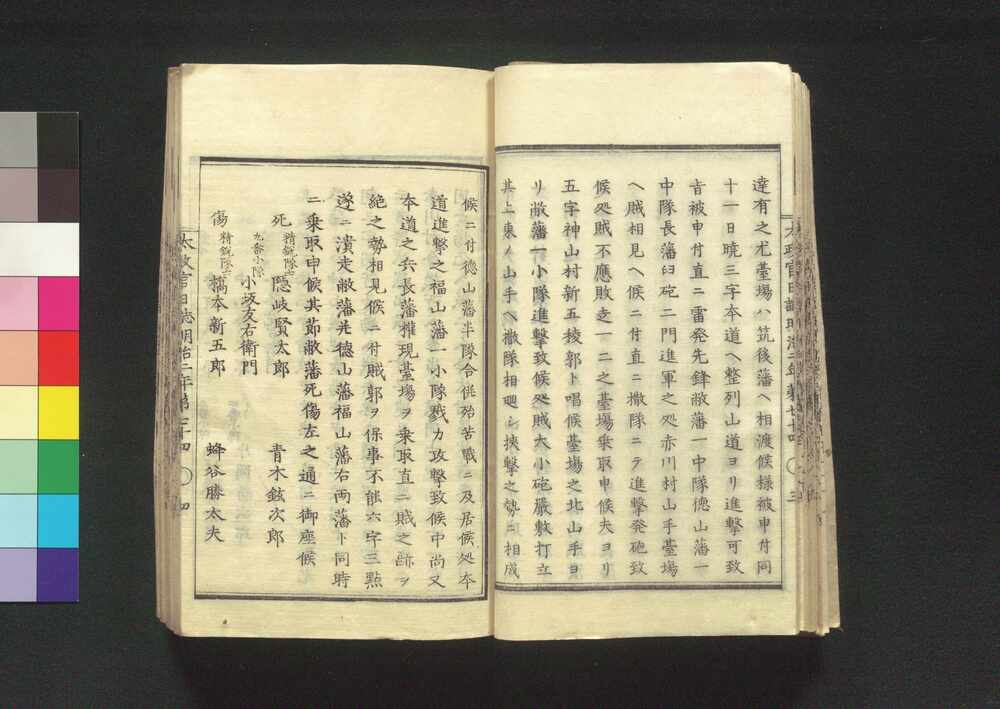 達有之尤臺場ハ筑後藩ヘ相渡候様被申付同
十一日曉三字本道ヘ整列山道ヨリ進撃可致
旨被申付直ニ雷発先鋒敝藩一中隊徳山藩一
中隊長藩臼砲二門進軍之処赤川村山手臺場
ヘ賊相見ヘ候ニ付直ニ撒隊ニテ進撃発砲致
候処賊不應敗走一二之臺場乗取申候夫ヨリ
五字神山村新五稜郭ト唱候臺場之北山手ヨ
リ敝藩一小隊進撃致候処賊大小砲嚴敷打立
其上東ノ山手ヘ撒隊相廻シ挟撃之勢ニ相成
候ニ付徳山藩半隊合併殆苦戰ニ及居候処本
道進撃之福山藩一小隊戮力攻撃致候中尚又
本道之兵長藩権現臺場ヲ乗取直ニ賊之跡ヲ
絶之勢相見候ニ付賊郭ヲ保事不能六字三點
遂ニ潰走敝藩并徳山藩福山藩右両藩ト同時
ニ乗取申候其節敝藩死傷左之通ニ御座候
死 精鋭隊士 隠岐賢太郎 青木鉉次郎
九番小隊 小坂友右衛門
傷 精鋭隊士 橋本新五郎 蜂谷勝太夫
太政官日誌明治二年第七十四 三
太政官日誌明治二年第七十四 四